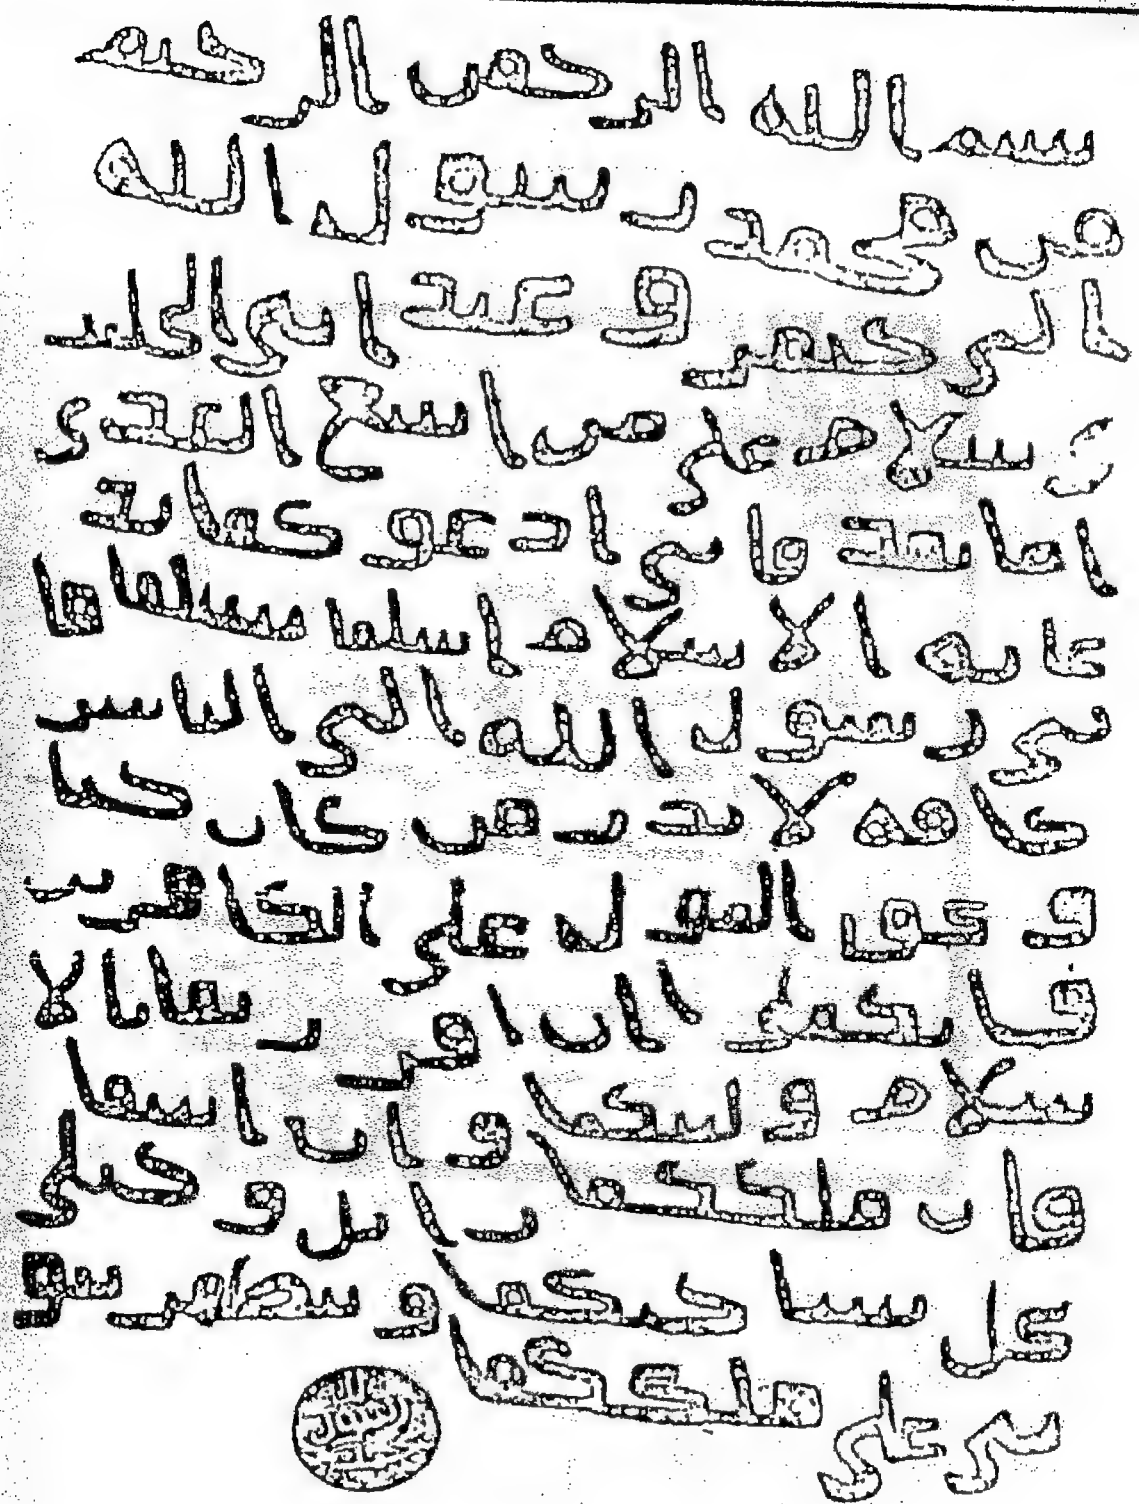 بسم الله الرحمن الرحيم
من محمد رسول الله
الى جيفر وعبد ابنى الجلند
ى سلام على من اتبع الهدى
اما بعد فانى ادعوكما بد
عايه الاسلام اسلما تسلما فا
نى رسول الله الى الناس
كافه لانذر من كان حيا
و يحق القول على الكافرين
فانكما ان اقررتما بالا
سلام وليتكما وان ابيتما
فان ملككما زايل وخيلى
تحل بساحتكما وتظهر نبو
تى على ملككما
الله
رسول
محمد